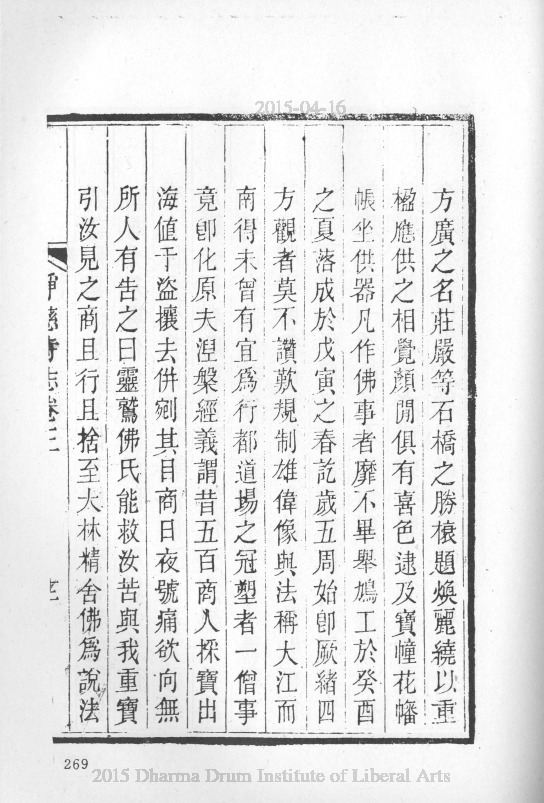 2015-04-16
方廣之名莊嚴等石橋之勝榱題煥麗繞以重
楹應供之相覺顏開俱有喜色逮及寶幢花幡
帳坐供器凡作佛事者靡不畢舉鳩工於癸酉
之夏落成於戊寅之春訖歲五周始卽厥緒四
方觀者莫不讚歎規制雄偉像與法稱大江而
南得未曾有宜爲行都道場之冠塑者一僧事
竟卽化原夫湼槃經義謂昔五百商人採寶出
海値于盜攘去併剜其目商日夜號痛欲向無
所人有告之曰靈鷲佛氏能救汝苦與我重寶
引汝見之商且行且捨至大林精舍佛爲說法
淨慈寺志卷二
269
2015 Dharma Drum Institute of Liberal Arts